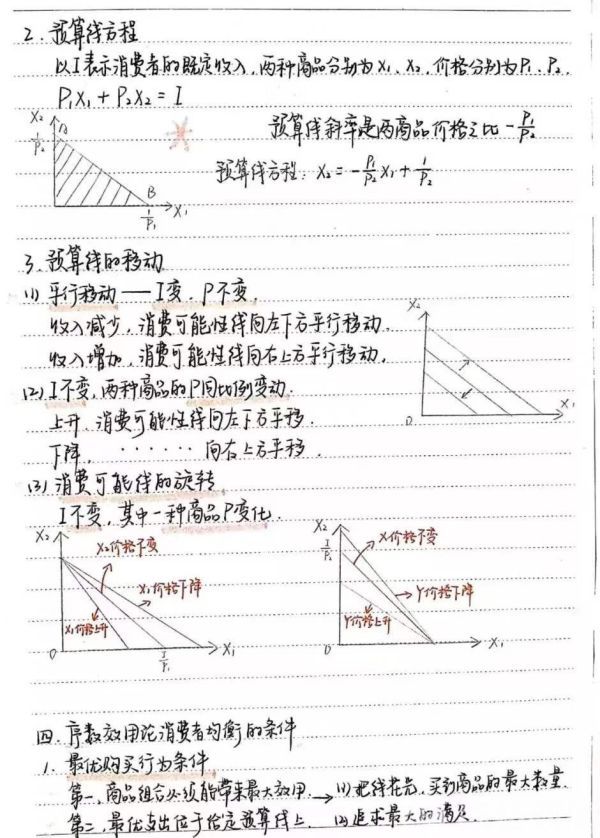 2. 预算线方程
以I表示消费者的既定收入，两种商品分别为X₁、X₂，价格分别为P₁、P₂。
P₁X₁ + P₂X₂ = I
X₂
I/P₂
A
B
I/P₁
X₁
预算线斜率是两商品价格之比 -P₁/P₂
预算线方程：X₂ = -P₁/P₂ X₁ + I/P₂
3. 预算线的移动
(1) 平行移动——I变，P不变，
收入减少，消费可能性线向左下方平行移动.
收入增加，消费可能性线向右上方平行移动.
X₂
0
X₁
(2) I不变，两种商品的P同比例变动.
上升，消费可能性线向左下方平移.
下降，······ 向右上方平移.
(3) 消费可能线的旋转
I不变，其中一种商品P变化.
X₂
X₂价格不变
X₁价格下降
X₁价格上升
0
I/P₁
X₁
X₂
I/P₂
X价格不变
Y价格下降
Y价格上升
0
X₁
四. 序数效用论消费者均衡的条件
1. 最优购买行为条件
第一，商品组合必须能带来最大效用. → (1) 把钱花光，买到商品的最大数量.
第二，最优支出位于给定预算线上. (2) 追求最大的满足.